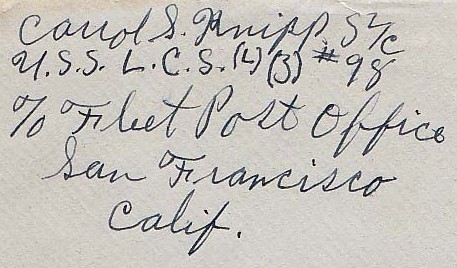 Carrol S. Knipp S 1/c
U.S.S. L.C.S. (L) (3) # 98
℅ Fleet Post Office
San Francisco
Calif.